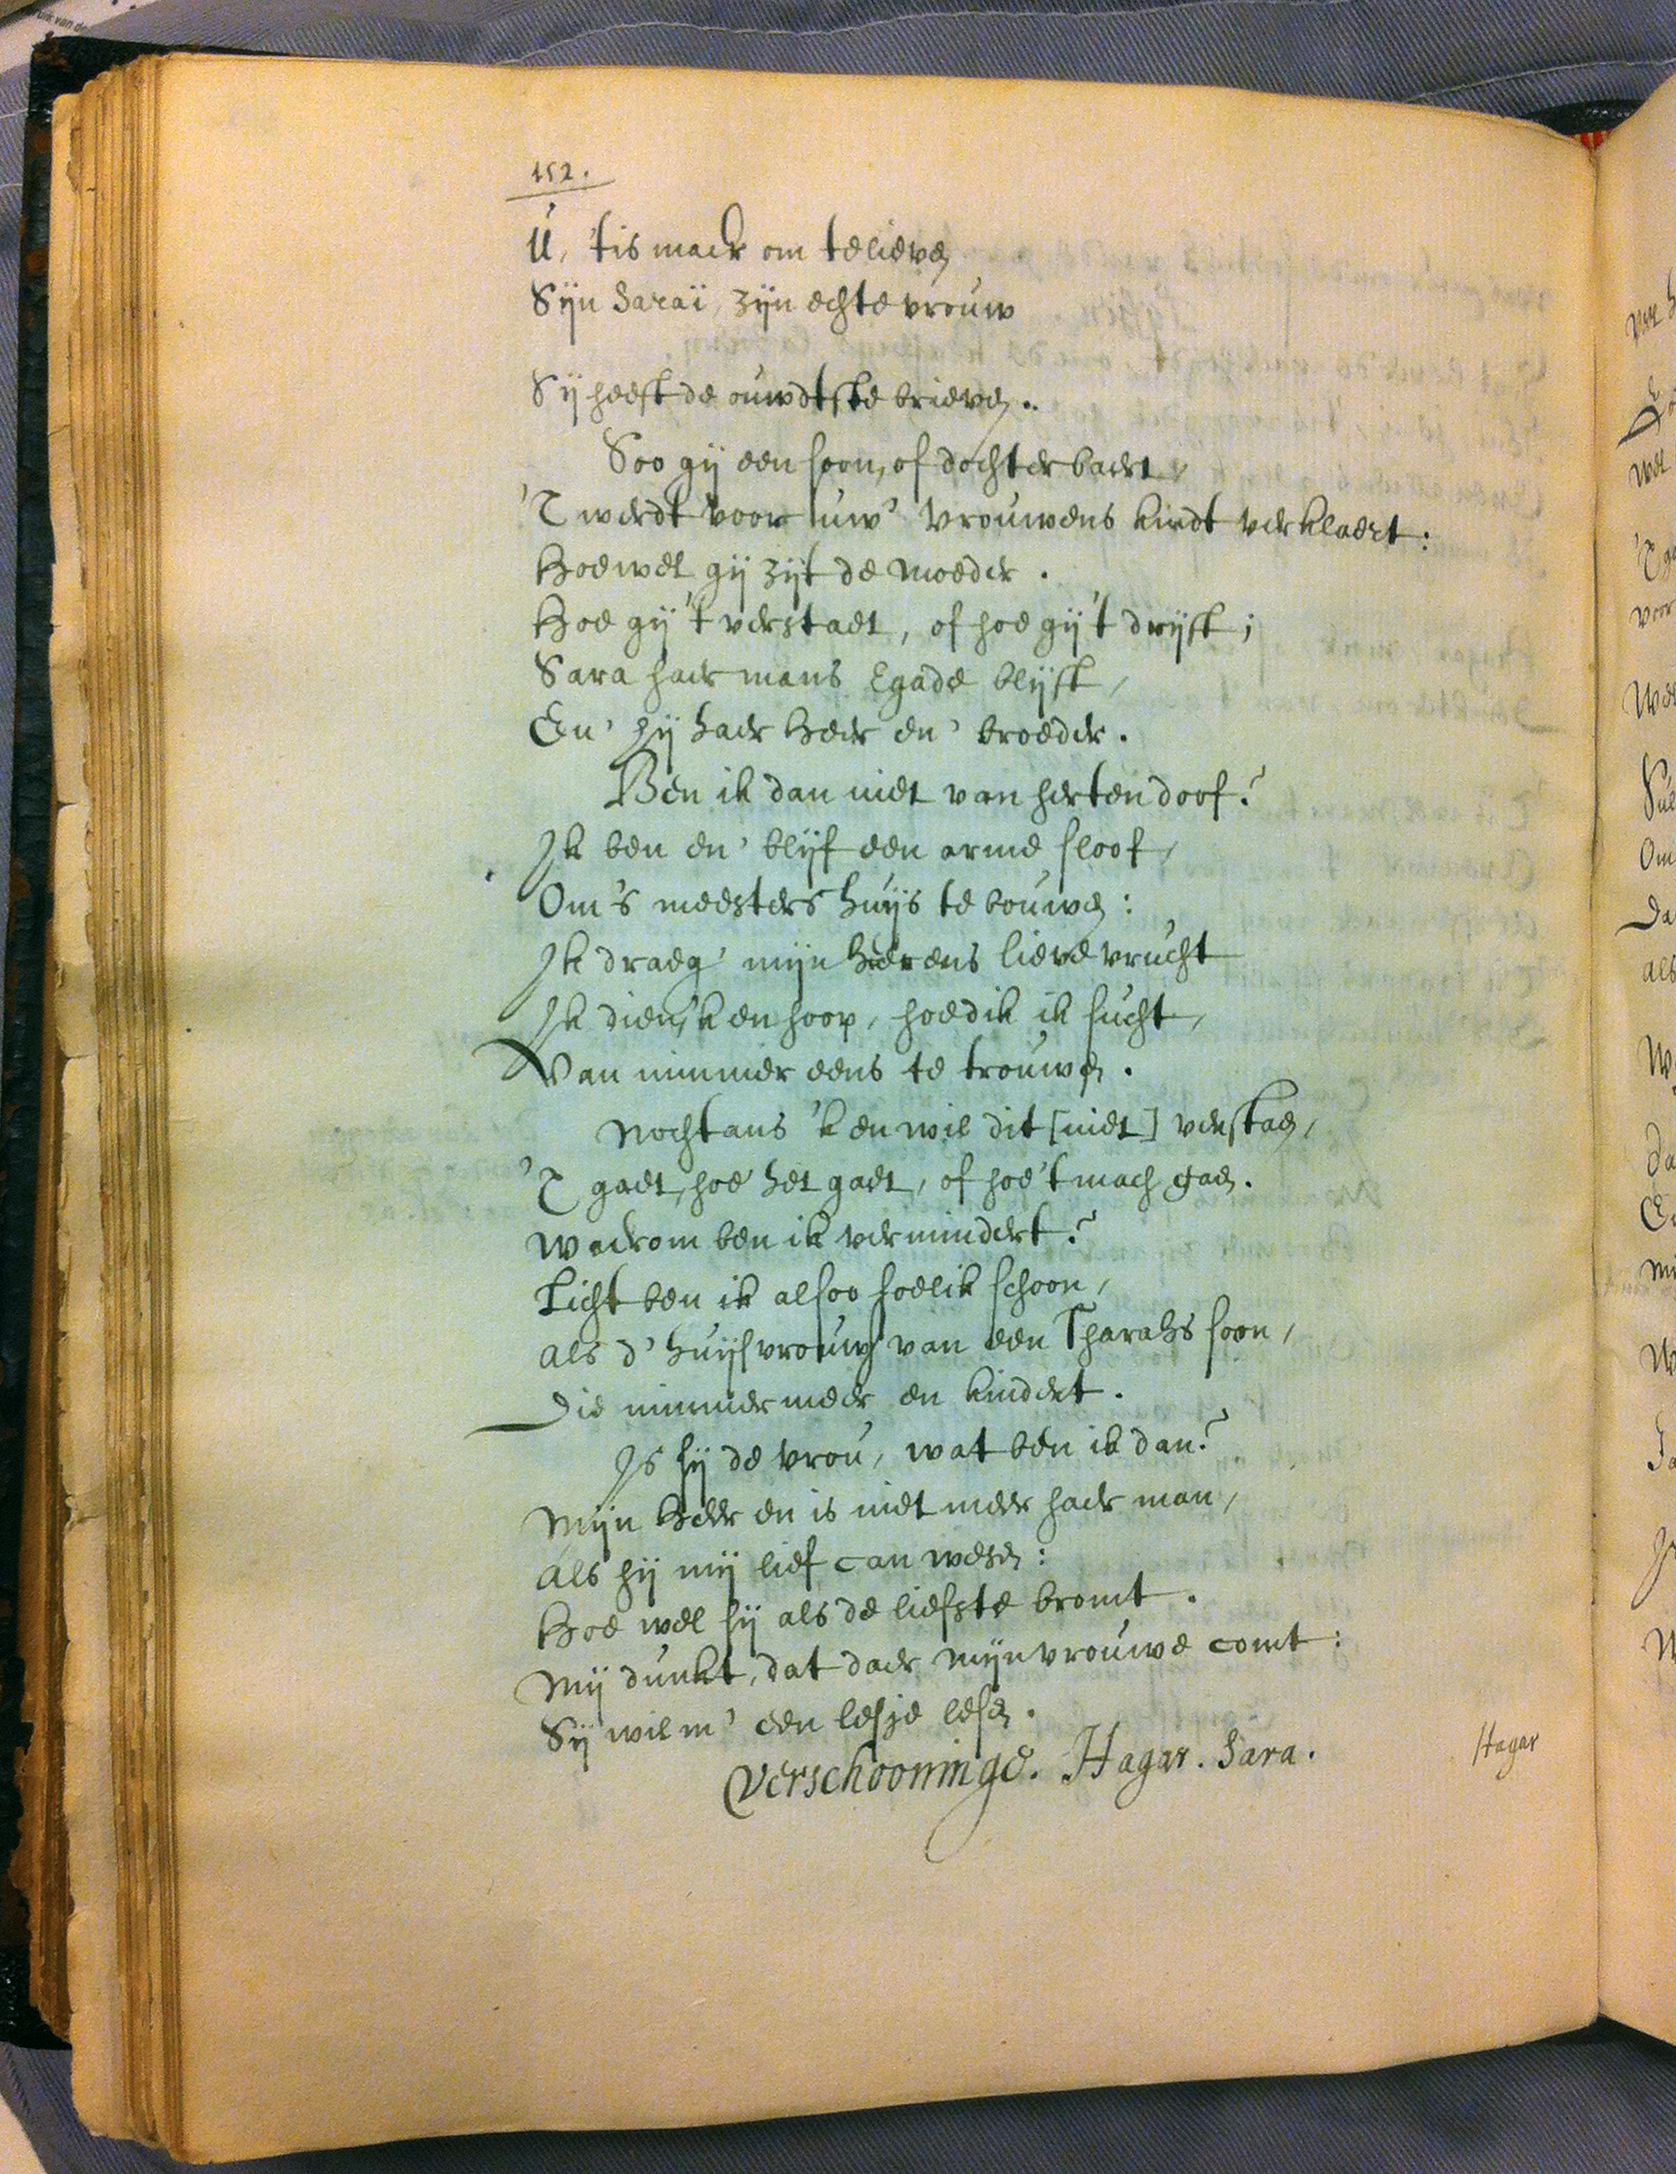 152.
U, 'tis maer om te lieven
Sijn Saraï, zijn echte vrouw
Sij heeft de ouwdtste brieven.
Soo gij een soon, of dochter baert,
'T werdt voor uw' vrouwens kindt verklaert:
Hoewel gij zijt de moeder.
Hoe gij 't verstaet, of hoe gij 't drijft;
Sara haer mans Egade blijft,
En' hij haer Heer en' broeder.
Ben ik dan niet van herten doof?
Ik ben en' blijf een arme sloof,
Om 's meesters huijs te bouwen:
Ik draeg' mijn heerens lieve vrucht
Ik dien, 'k en hoop, hoe dik ik sucht,
Van nimmer eens te trouwen.
Nochtans 'k en wil dit [niet] verstaen,
'T gaet, hoe het gaet, of hoe 't mach gaen.
Waerom ben ik vermindert?
Licht ben ik alsoo soelik schoon,
als d' huijsvrouw van een Tharahs soon,
Die nimmermeer en kindert.
Is sij de vrou, wat ben ik dan?
Mijn Heer en is niet meer haer man,
als hij mij lief can wesen:
Hoe wel sij als de liefste bromt.
Mij dunkt, dat daer mijn vrouwe comt:
Sij wil m' een lesje lesen.
Verschooninge. Hagar. Sara.
Hagar